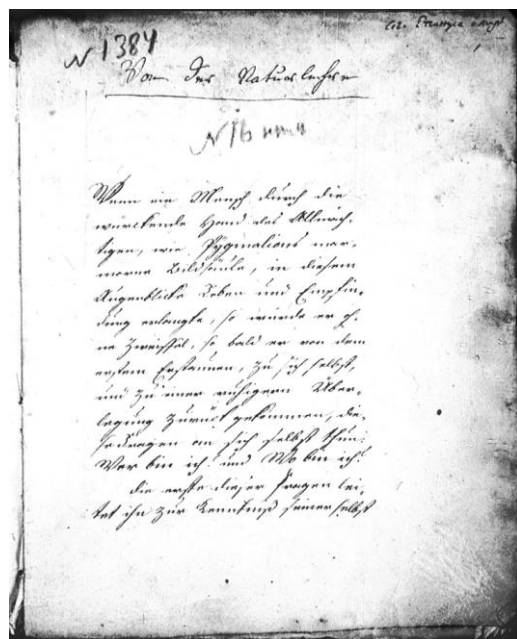 N 1384
Von der Naturlehre
N 16
Wenn ein Mensch durch die
würckende Hand des Allmäch-
tigen, wie Pygmalions mar-
morne Bildsäule, in diesem
Augenblicke Leben und Empfin-
dung erlangte, so würde er oh-
ne Zweiffel, so bald er von dem
ersten Erstaunen, zu sich selbst,
und zu einer ruhigern Über-
legung zurück gekommen, die-
se Fragen an sich selbst thun:
Wer bin ich? und Wo bin ich?
die erste dieser Fragen lei-
tet ihn zur Kenntniß seiner selbst